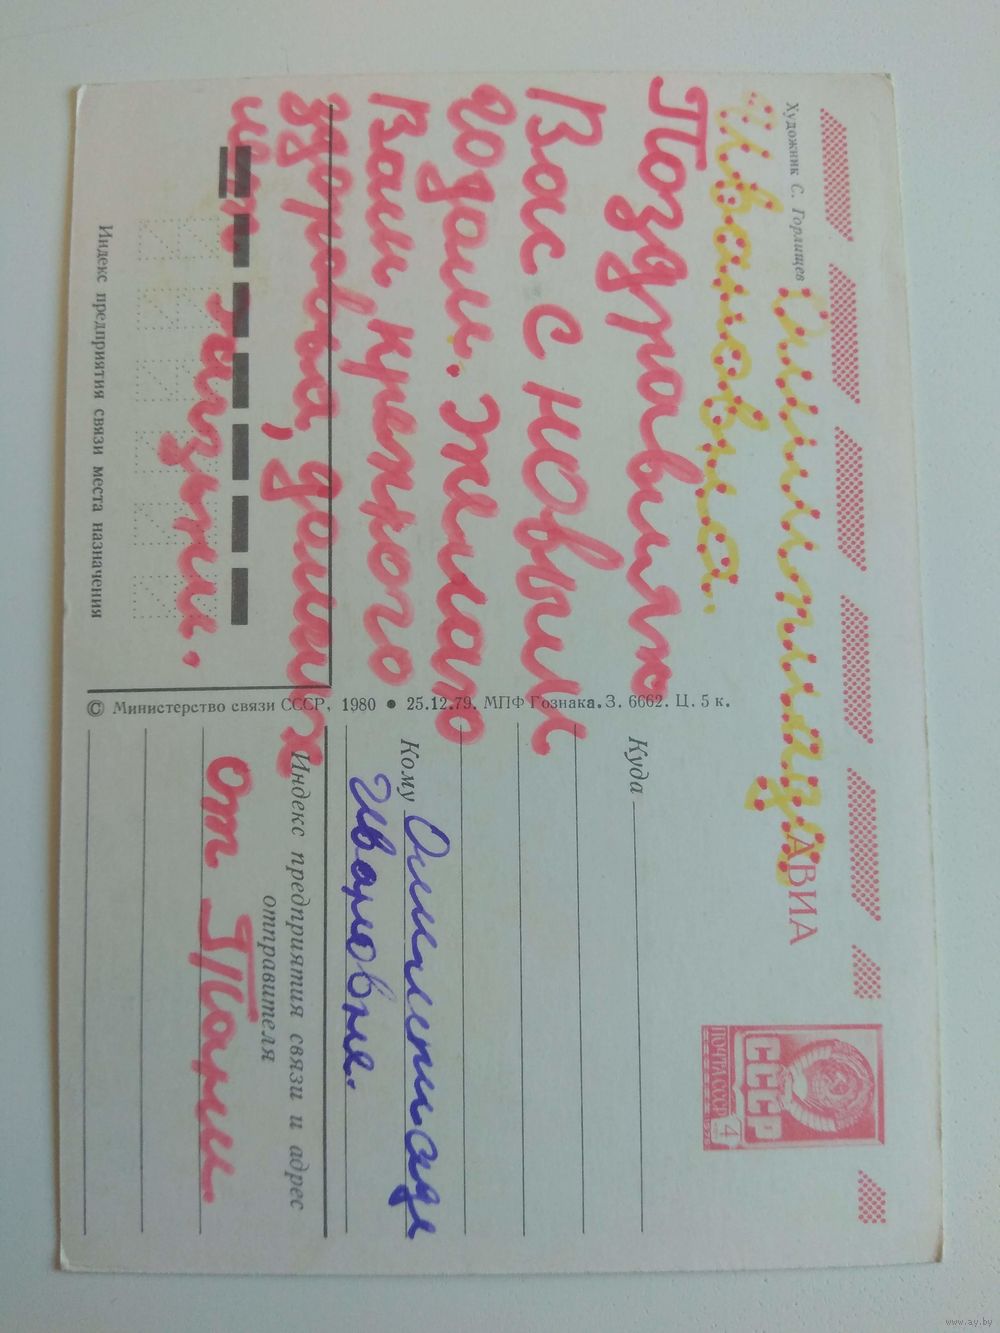 Художник С. Горлищев
АВИА
Олимпиада
Ивановна.
Поздравляю
Вас с новым
годом. Желаю
Вам, крепкого
здоровья, долгих
лет жизни.
Индекс предприятия связи места назначения
© Министерство связи СССР, 1980 • 25.12.79. МПФ Гознака. З. 6662. Ц. 5 к.
ПОЧТА СССР
СССР
4
Куда
Кому Олимпиаде
Ивановне.
Индекс предприятия связи и адрес
отправителя
от Тани
www.ay.by